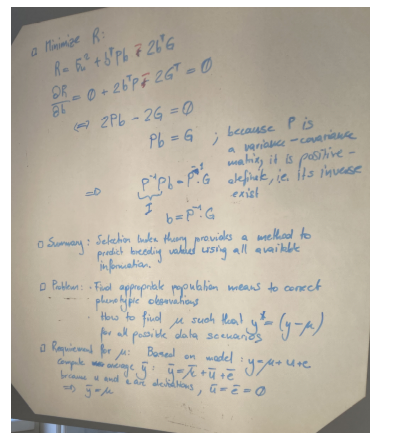 □ Minimize R:
R = σ_u² + b^T Pb - 2b^T G
∂R/∂b = 0 + 2b^T P - 2G^T = 0
(=) 2Pb - 2G = 0
Pb = G ; because P is
a variance-covariance
matrix, it is positive-
definite, i.e. its inverse
exist
=D P^-1 Pb = P^-1 · G
I
b = P^-1 · G
□ Summary: Selection Index theory provides a method to
predict breeding values using all available
information.
□ Problem: · Find appropriate population means to correct
phenotypic observations
· How to find μ such that y* = (y - μ)
for all possible data scenarios
□ Requirement for μ: Based on model: y = μ + u + e
compute average ȳ: ȳ = μ̄ + ū + ē
because u and e are deviations, ū = ē = 0
=> ȳ = μ